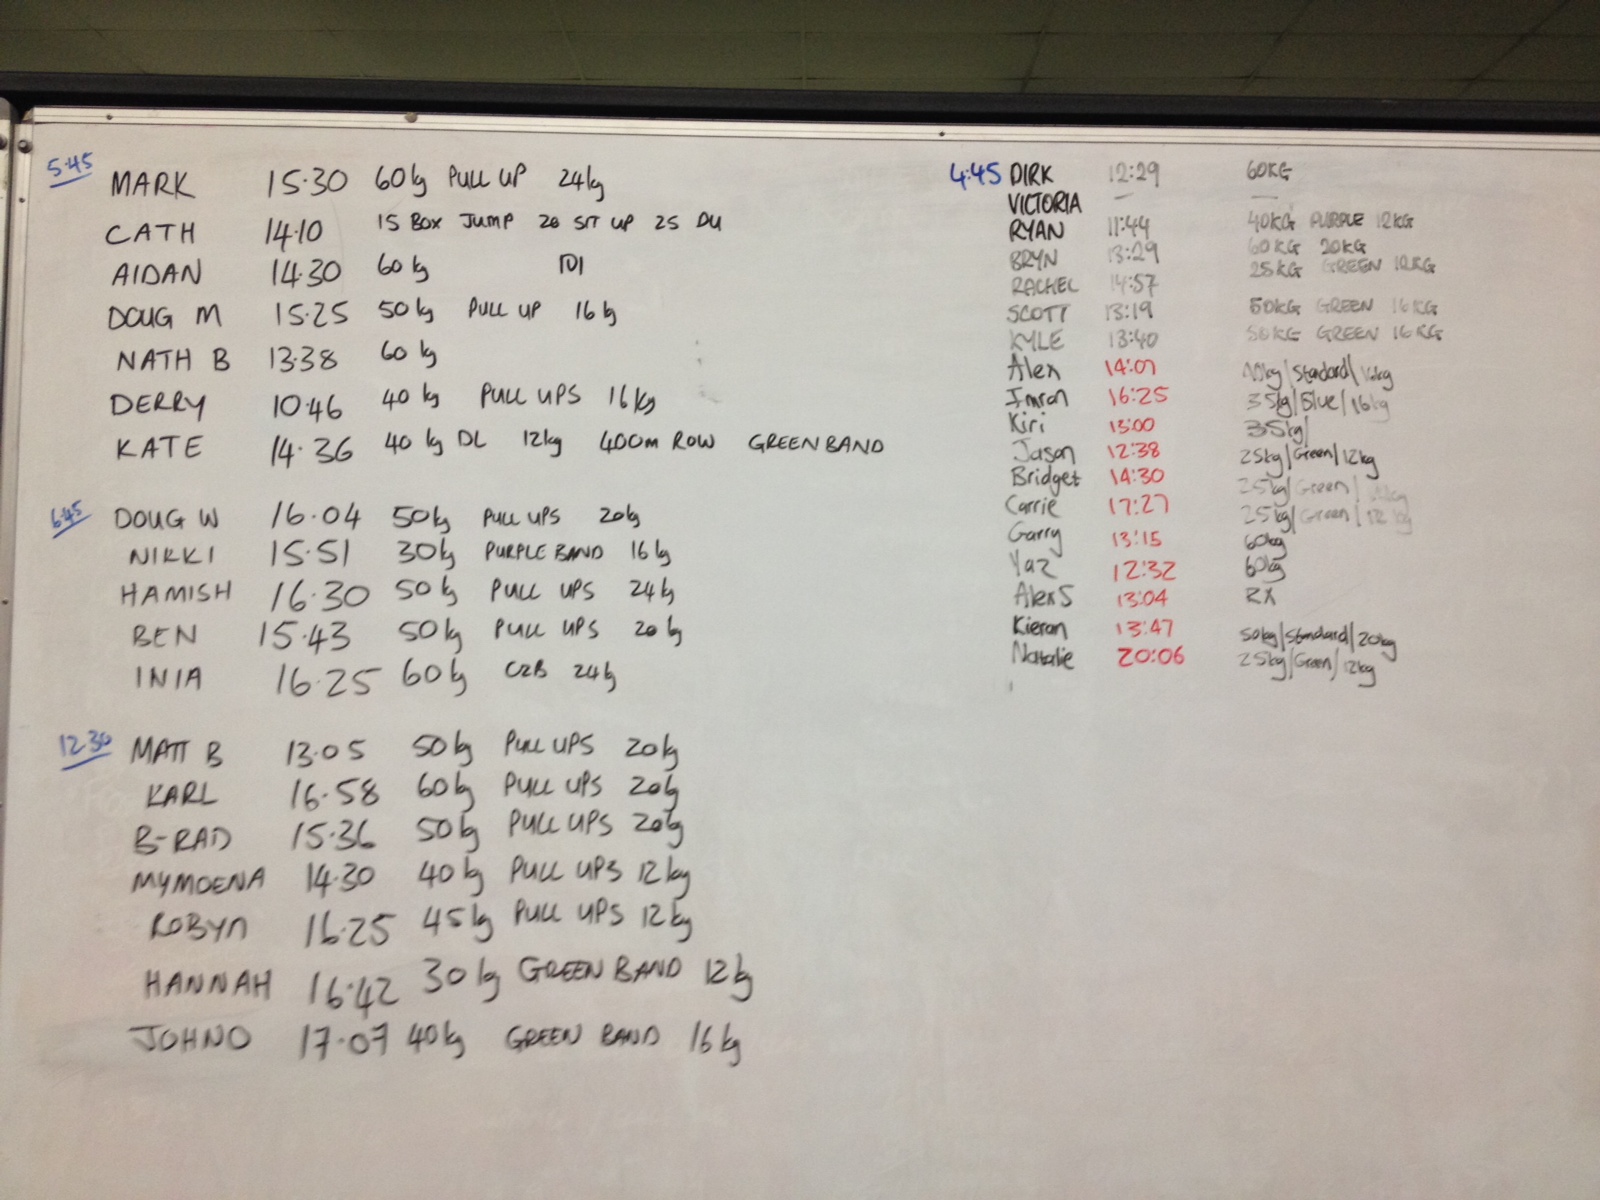 5·45 MARK 15·30 60kg PULL UP 24kg
CATH 14·10 15 BOX JUMP 20 SIT UP 25 DU
AIDAN 14·30 60kg
DOUG M 15·25 50kg PULL UP 16kg
NATH B 13·38 60kg
DERRY 10·46 40kg PULL UPS 16kg
KATE 14·36 40kg DL 12kg 400m ROW GREEN BAND
6·45 DOUG W 16·04 50kg PULL UPS 20kg
NIKKI 15·51 30kg PURPLE BAND 16kg
HAMISH 16·30 50kg PULL UPS 24kg
BEN 15·43 50kg PULL UPS 20kg
INIA 16·25 60kg C2B 24kg
12·30 MATT B 13·05 50kg PULL UPS 20kg
KARL 16·58 60kg PULL UPS 20kg
B-RAD 15·36 50kg PULL UPS 20kg
MYMOENA 14·30 40kg PULL UPS 12kg
ROBYN 16·25 45kg PULL UPS 12kg
HANNAH 16·42 30kg GREEN BAND 12kg
JOHNO 17·07 40kg GREEN BAND 16kg
4:45 DIRK 12:29 60KG
VICTORIA — —
RYAN 11:44 40KG PURPLE 12KG
BRYN 13:29 60KG 20KG
RACHEL 14:57 25KG GREEN 12KG
SCOTT 13:19 50KG GREEN 16KG
KYLE 13:40 50KG GREEN 16KG
Alex 14:07 Standard
Imran 16:25 35kg/Blue/16kg
Kiri 13:00 35kg/
Jason 12:38 25kg/Green/12kg
Bridget 14:30 25kg/Green/
Carrie 17:27 25kg/Green/12kg
Garry 13:15 60kg
Yaz 12:32 60kg
Alex S 13:04 RX
Kieran 13:47 50kg/Standard/20kg
Natalie 20:06 25kg/Green/12kg